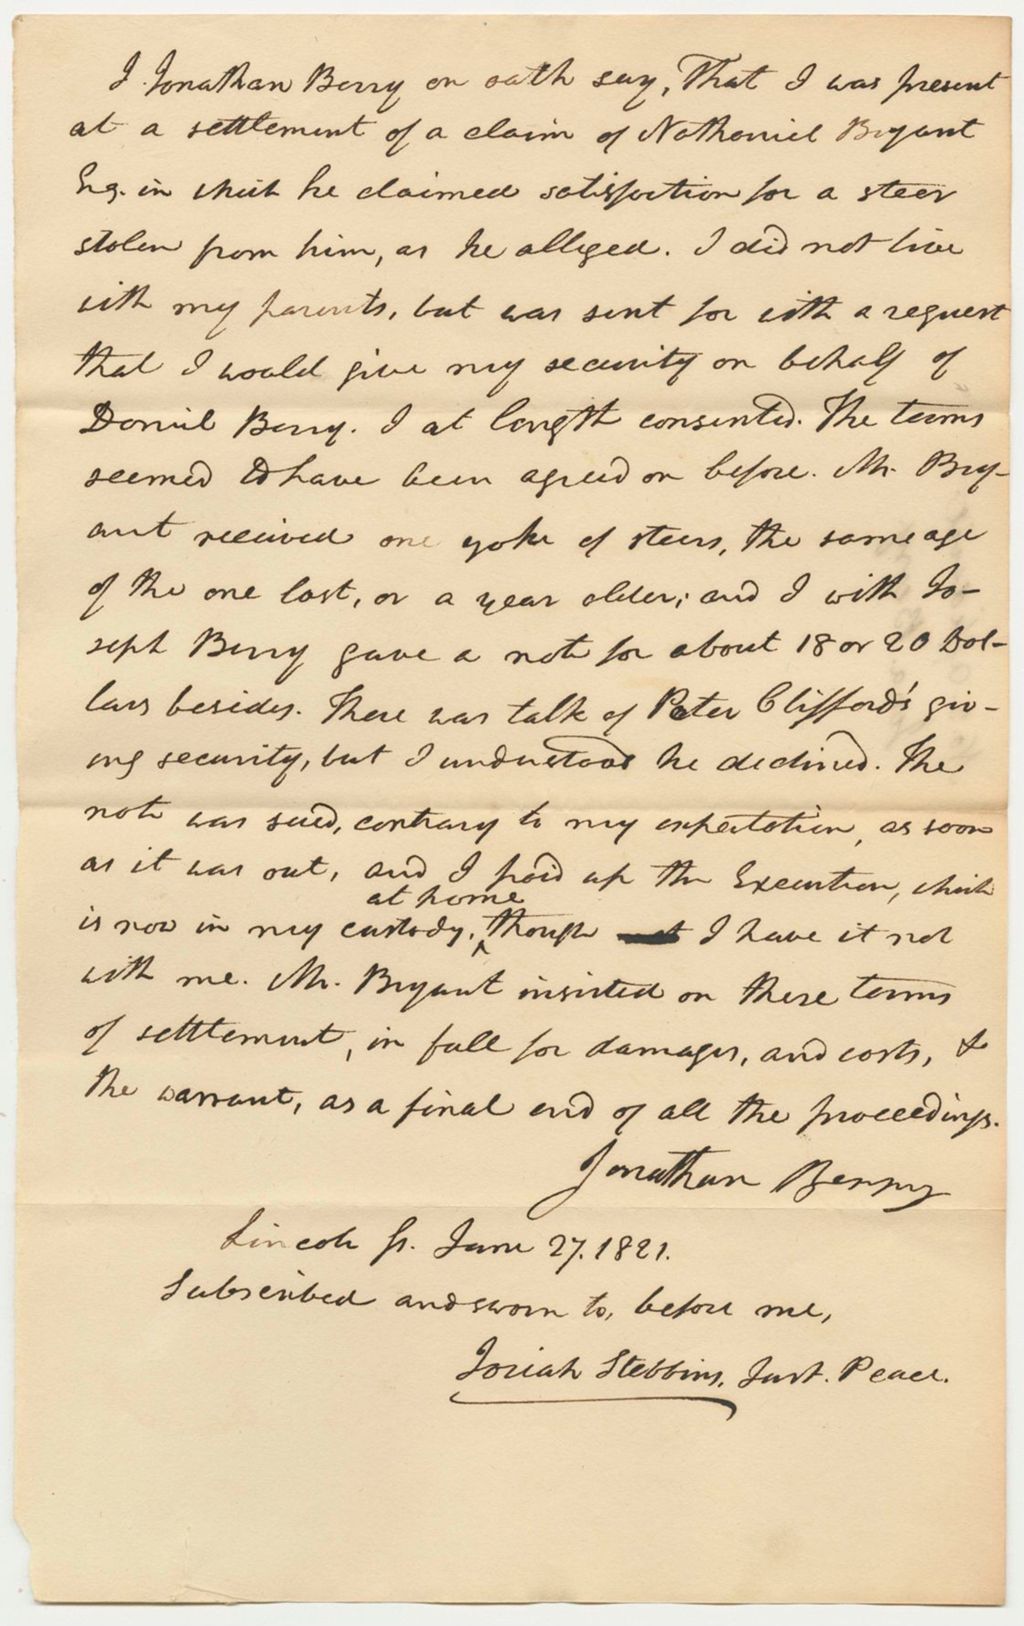 I Jonathan Berry on oath say, That I was present
at a settlement of a claim of Nathaniel Bryant
Esq. in which he claimed satisfaction for a steer
stolen from him, as he alleged. I did not live
with my parents, but was sent for with a request
that I would give my security on behalf of
Daniel Berry. I at length consented. The terms
seemed to have been agreed on before. Mr. Bry-
ant received one yoke of steers, the same age
of the one lost, or a year older; and I with Jo-
seph Berry gave a note for about 18 or 20 Dol-
lars besides. There was talk of Peter Clifford's giv-
ing security, but I understood he declined. The
note was sued, contrary to my expectation, as soon
as it was out, and I paid up the Execution, which
at home
is now in my custody, though I have it not
with me. Mr. Bryant insisted on these terms
of settlement, in full for damages, and costs, &
the warrant, as a final end of all the proceedings.
Jonathan Berry
Lincoln ss. June 27. 1821.
Subscribed and sworn to, before me,
Josiah Stebbins, Just. Peace.